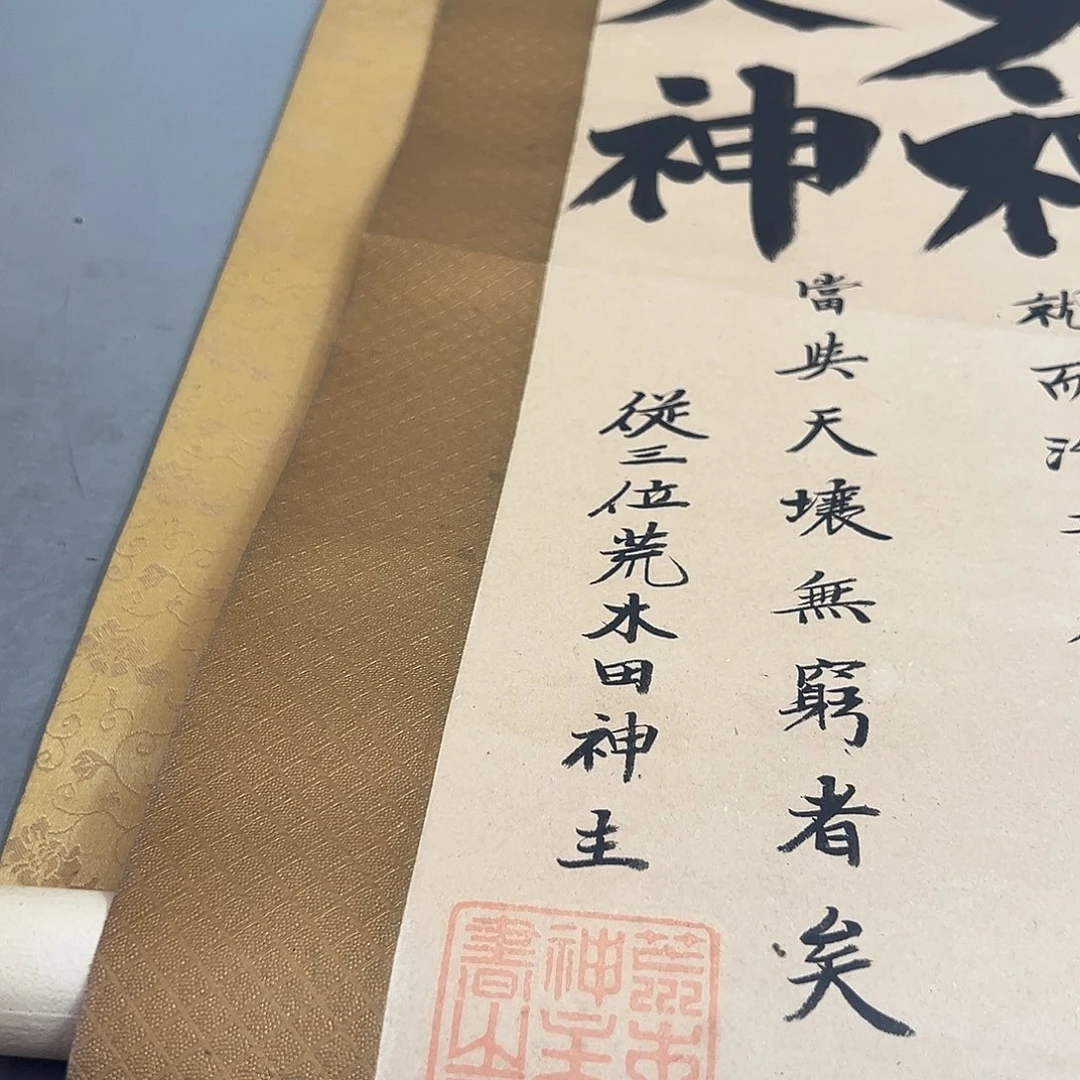 就而
神
當與天壤無窮者矣
從三位荒木田神主
荒木
神主
書